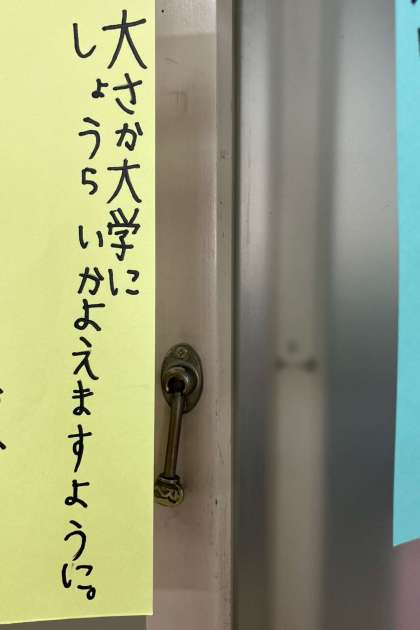 大さか大学に
しょうらいかよえますように。